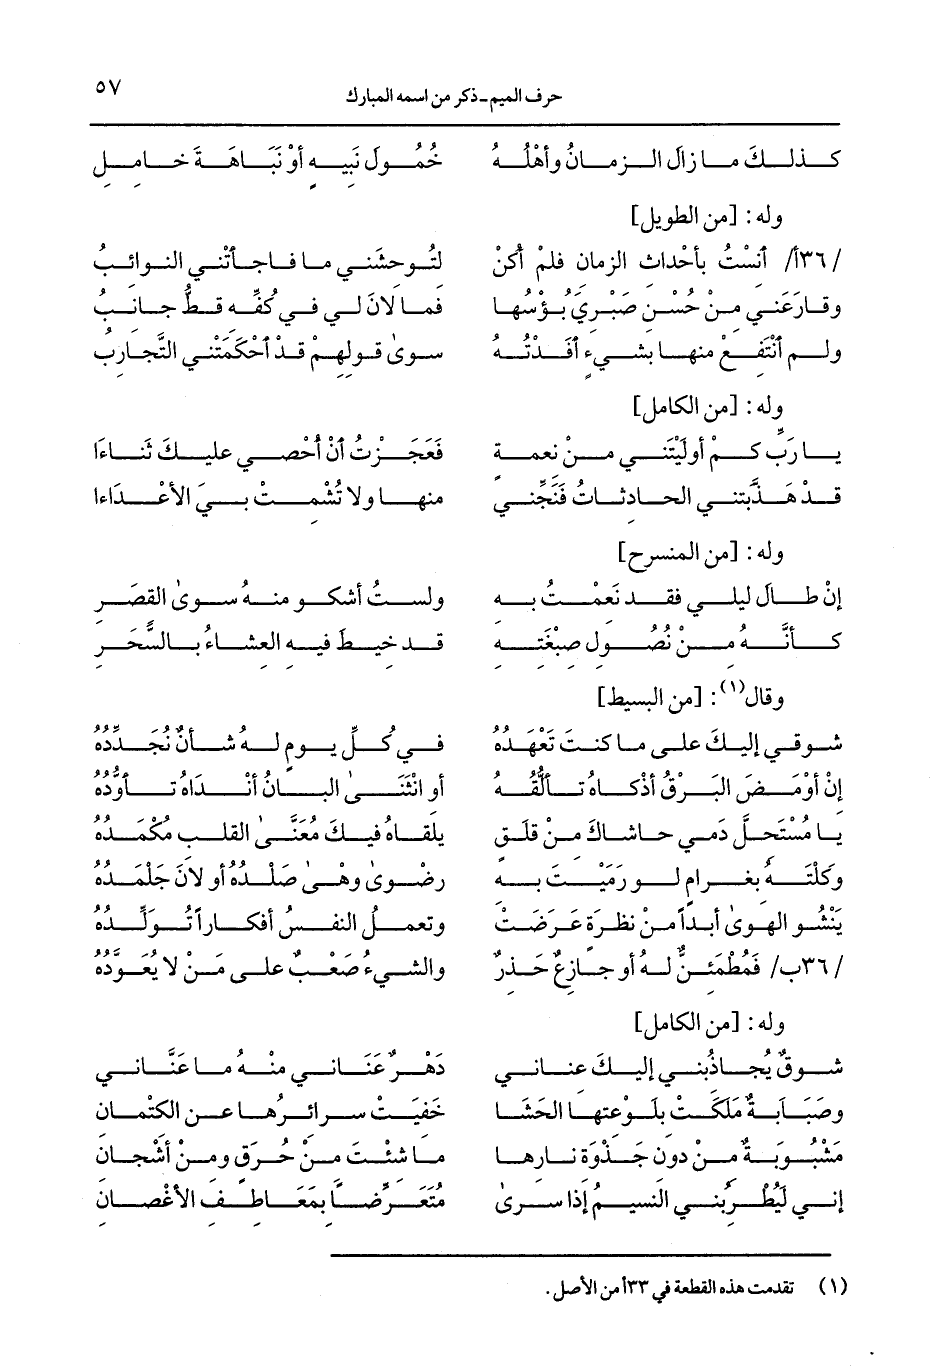 حرف الميم ـ ذكر من اسمه المبارك ٥٧
كذلكَ ما زالَ الزمانُ وأهْلُهُ خُمُولَ نَبِيهٍ أوْ نَبَاهَةَ خاملِ
وله: [من الطويل]
/٣٦أ/ أَنِسْتُ بأحْداثِ الزمانِ فلمْ أكُنْ لتُوحشَني ما فاجأتْني النوائبُ
وقارَعَني مِنْ حُسْنِ صَبْرِيَ بُؤسُها فما لانَ لي في كَفِّهِ قطُّ جانبُ
ولم أنْتَفِعْ منها بشيءٍ أفَدْتُهُ سوىٰ قولِهِمْ قدْ أحْكَمَتْني التَّجارِبُ
وله: [من الكامل]
يا رَبِّ كمْ أولَيْتَني مِنْ نعمةٍ فَعَجَزْتُ أنْ أُحْصي عليكَ ثَناءَا
قدْ هَذَّبَتني الحادثاتُ فَنَجِّني منها ولا تُشْمِتْ بيَ الأعْدَاءا
وله: [من المنسرح]
إنْ طالَ ليلي فقد نَعِمْتُ بهِ ولستُ أشكو منهُ سوىٰ القِصَرِ
كأنَّهُ مِنْ نُصُولِ صِبْغَتِهِ قد خِيطَ فيهِ العشاءُ بالسَّحَرِ
وقال(١): [من البسيط]
شوقي إليكَ على ما كنتَ تَعْهَدُهُ في كُلِّ يومٍ لهُ شأنٌ تُجَدِّدُهُ
إنْ أوْمَضَ البَرْقُ أذْكاهُ تألُّقُهُ أو انْثَنَىٰ البانُ أنْدَاهُ تأوُّدُهُ
يا مُسْتَحِلَّ دَمي حاشاكَ مِنْ قلقٍ يلقاهُ فيكَ مُعَنَّىٰ القلبِ مُكْمَدُهُ
وكَلْتَهُ بغرامٍ لو رَمَيْتَ بهِ رضْوىٰ وهىٰ صَلْدُهُ أو لانَ جَلْمَدُهُ
يَنْشُو الهوىٰ أبداً مِنْ نظرةٍ عَرَضَتْ وتعملُ النفسُ أفكاراً تُوَلِّدُهُ
/٣٦ب/ فَمُطْمَئِنٌّ لهُ أو جازِعٌ حَذِرٌ والشيءُ صَعْبٌ على مَنْ لا يُعَوَّدُهُ
وله: [من الكامل]
شوقٌ يُجاذُبني إليكَ عناني دَهْرٌ عَنَاني منْهُ ما عَنَّاني
وصَبَابةٌ مَلَكَتْ بلَوْعتِها الحَشَا خَفِيَتْ سرائرُها عنِ الكتمانِ
مَشْبُوبةٌ مِنْ دونِ جَذْوةِ نارِها ما شئْتَ مِنْ حُرَقٍ ومِنْ أشْجانِ
إني ليُطْرِبُني النسيمُ إذا سرىٰ مُتَعَرِّضاً بمَعَاطفِ الأغْصانِ
(١) تقدمت هذه القطعة في ٣٣أ من الأصل.